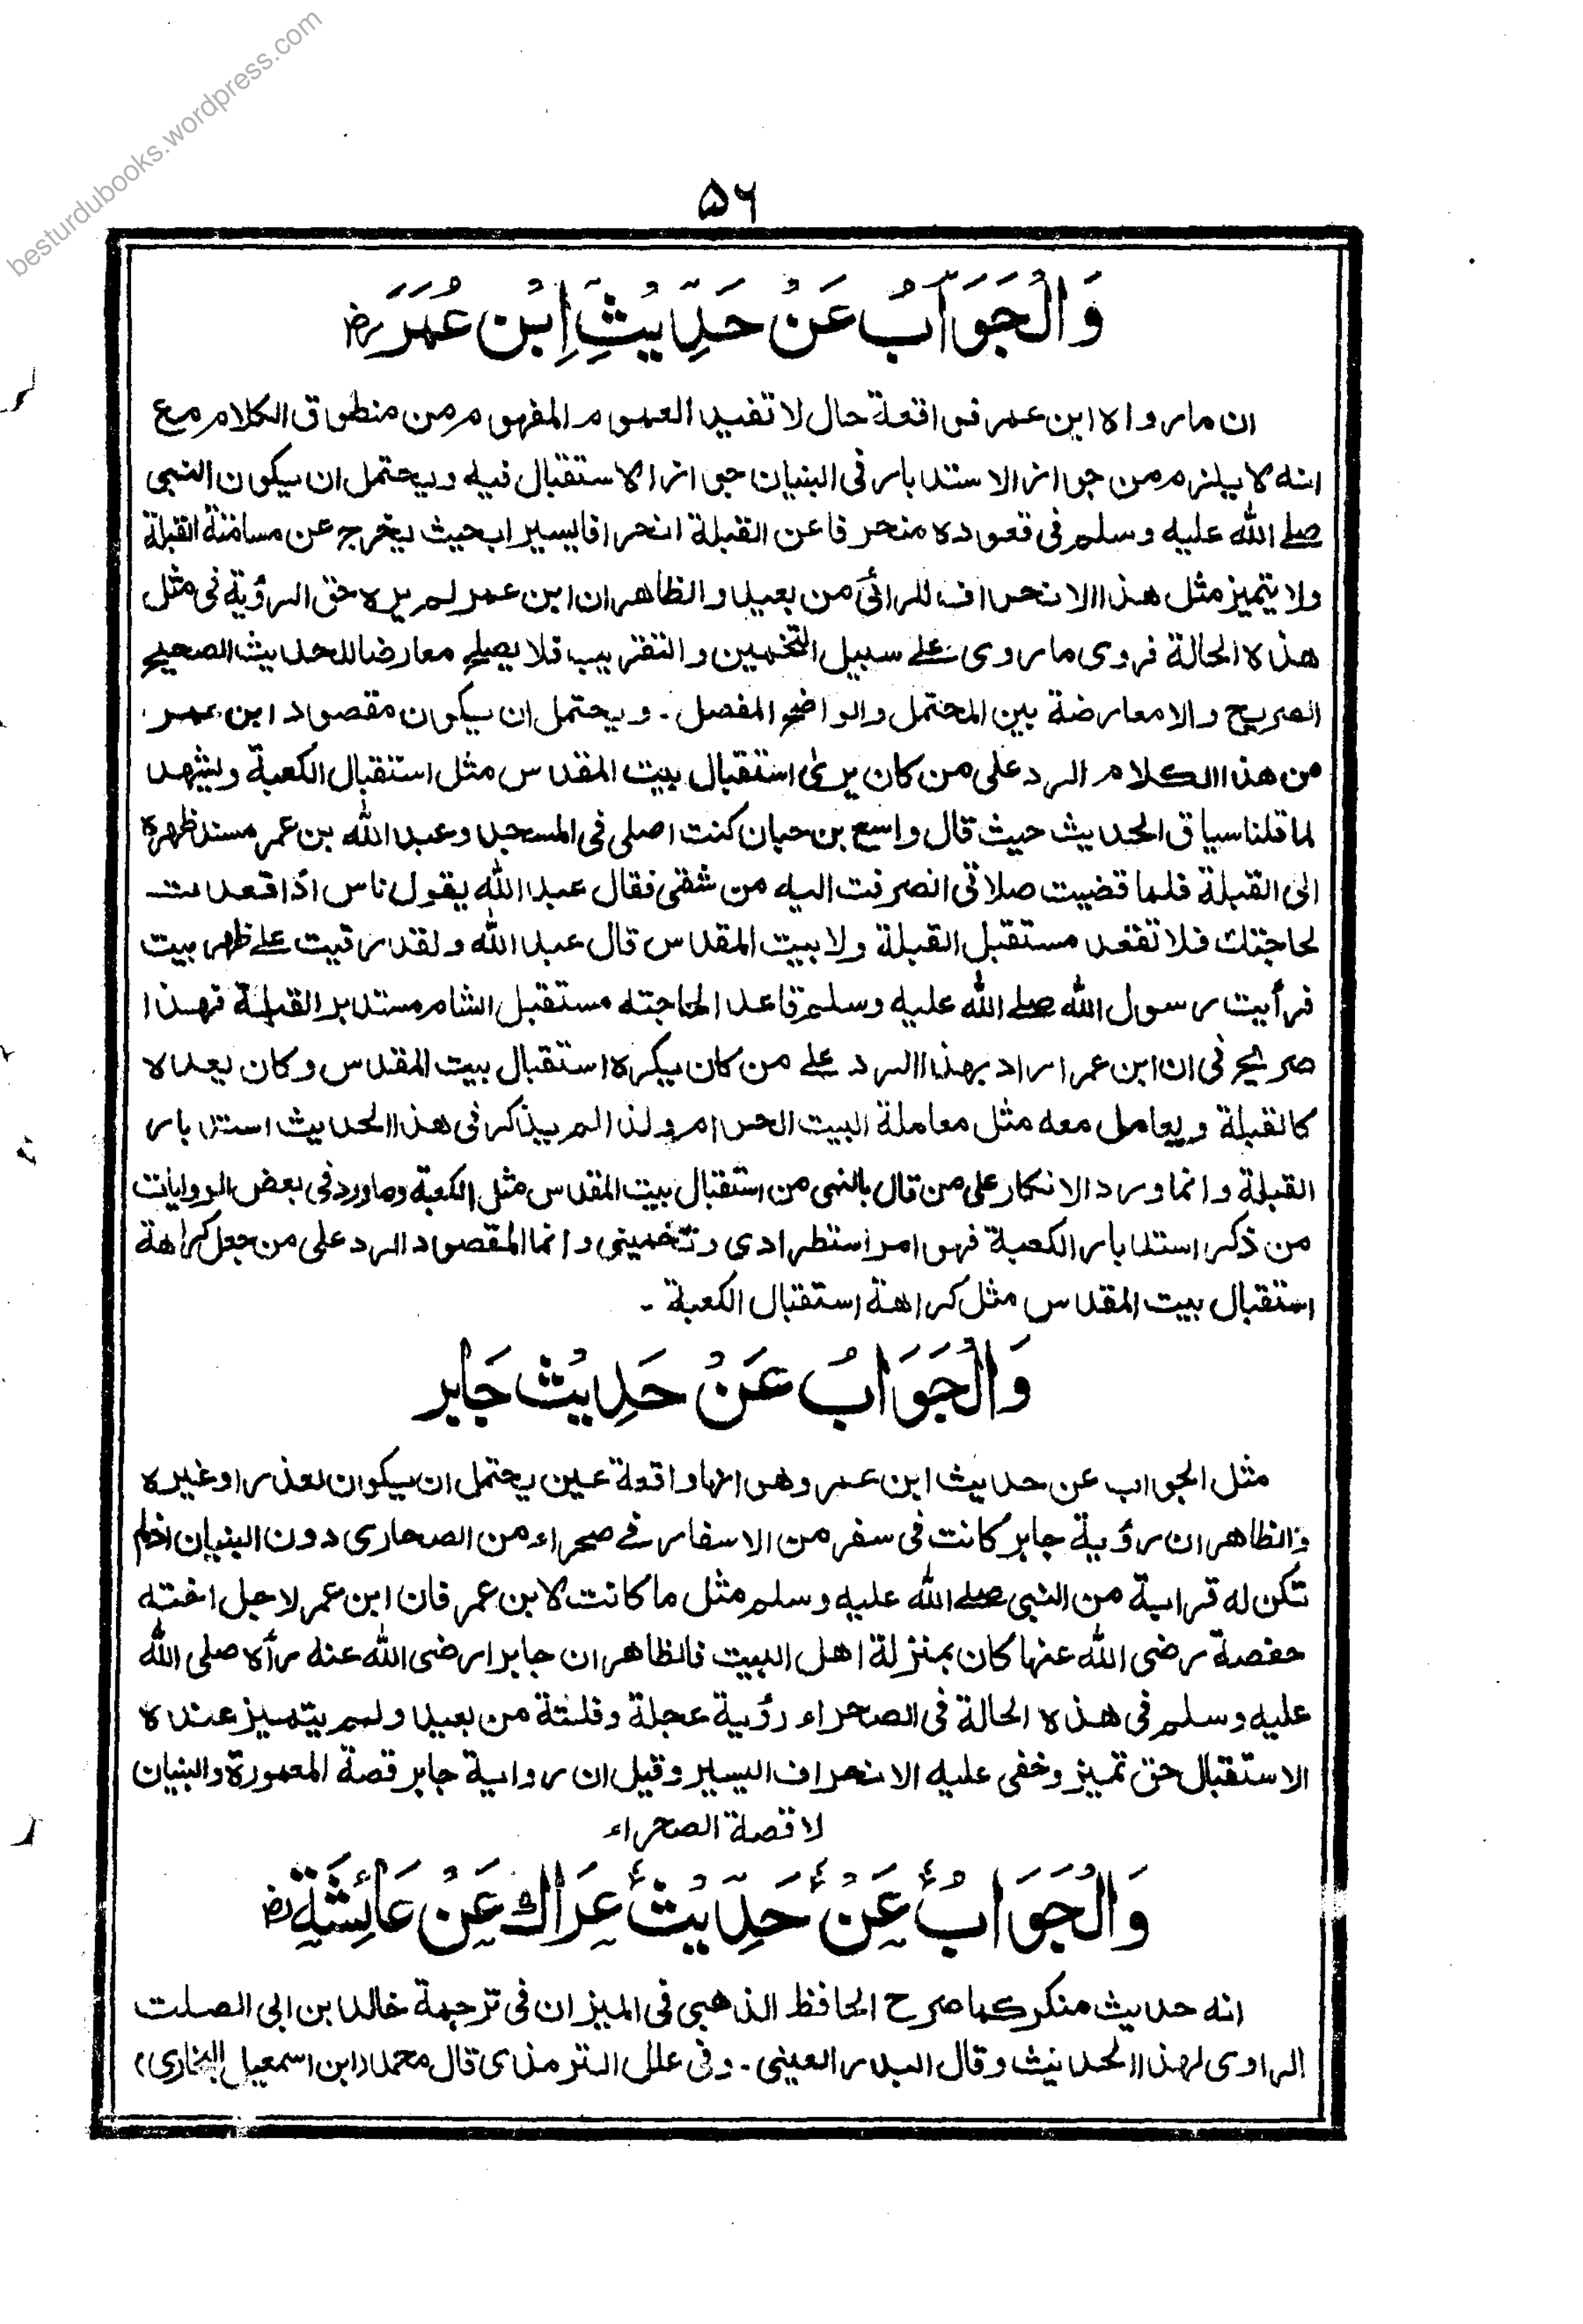 besturdubooks.wordpress.com
۵۶
وَالْجَوَابُ عَنْ حَدِيْثِ اِبْنِ عُمَرَ رض
ان ما رواه ابن عمر فواقعة حال لا تفيد العموم المفهوم من منطوق الكلام مع
انه لا يلزم من جواز الاستدبار فى البنيان جواز الاستقبال فيه ويحتمل ان يكون النبى
صلے الله عليه وسلم فى قعوده منحرفا عن القبلة انحرافا يسيرا بحيث يخرج عن مسامتة القبلة
ولا يتميز مثل هذا الانحراف للرائى من بعيد والظاهر ان ابن عمر لم يره حق الرؤية فى مثل
هذه الحالة فروى ما روى علے سبيل التخمين والتقريب فلا يصلح معارضا للحديث الصحيح
الصريح والا معارضة بين المحتمل والواضح المفصل ـ ويحتمل ان يكون مقصود ابن عمر
من هذا الكلام الرد على من كان يرىٰ استقبال بيت المقدس مثل استقبال الكعبة ويشهد
لما قلنا سياق الحديث حيث قال واسع بن حبان كنت اصلى فى المسجد وعبد الله بن عمر مسند ظهره
الى القبلة فلما قضيت صلاتى انصرفت اليه من شقى فقال عبد الله يقول ناس اذا قعدت
لحاجتك فلا تقعد مستقبل القبلة ولا بيت المقدس قال عبد الله ولقد رقيت علے ظهر بيت
فرأيت رسول الله صلے الله عليه وسلم قاعدا لحاجته مستقبل الشام مستدبر القبلة فهذا
صريح فى ان ابن عمر اراد بهذا الرد علے من كان يكره استقبال بيت المقدس وكان يعده
كالقبلة ويعامل معه مثل معاملة البيت الحرام ولذا لم يذكر فى هذا الحديث استدبار
القبلة وانما ورد الانكار على من قال بالنهى من استقبال بيت المقدس مثل الكعبة وما ورد فى بعض الروايات
من ذكر استدبار الكعبة فهو امر استطرادى وتخمينى وانما المقصود الرد على من جعل كراهة
استقبال بيت المقدس مثل كراهة استقبال الكعبة ـ
وَالْجَوَابُ عَنْ حَدِيْثِ جَابِر
مثل الجواب عن حديث ابن عمر وهو انها واقعة عين يحتمل ان يكون لعذر او غيره
والظاهر ان رؤية جابر كانت فى سفر من الاسفار فے صحراء من الصحارى دون البنيان اذ لم
تكن له قرابة من النبى صلے الله عليه وسلم مثل ما كانت لابن عمر فان ابن عمر لاجل اخته
حفصة رضى الله عنها كان بمنزلة اهل البيت فالظاهر ان جابرا رضى الله عنه رأه صلى الله
عليه وسلم فى هذه الحالة فى الصحراء رؤية عجلة وفلتة من بعيد ولم يتميز عنده
الاستقبال حق تميز وخفى عليه الانحراف اليسير وقيل ان رواية جابر قصة المعمورة والبنيان
لا قصة الصحراء
وَالْجَوَابُ عَنْ حَدِيْثِ عِرَاكٍ عَنْ عَائِشَةِ رض
انه حديث منكر كما صرح الحافظ الذهبى فى الميزان فى ترجمة خالد بن ابى الصلت
الراوى لهذا الحديث وقال البدر العينى ـ وفى علل الترمذى قال محمد (ابن اسمعيل البخارى)